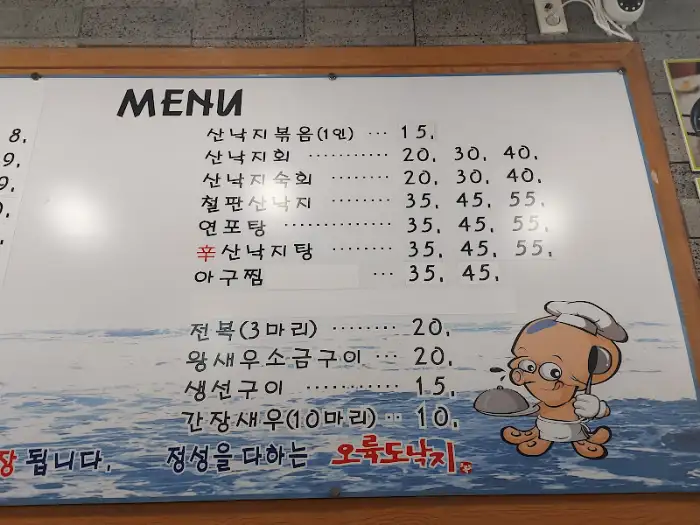 MENU
8.
9.
9.
산낙지볶음(1인) ··· 15.
산낙지회 ··········· 20. 30. 40.
산낙지숙회 ········ 20. 30. 40.
철판산낙지 ········ 35. 45. 55.
연포탕 ·············· 35. 45. 55.
辛산낙지탕 ········ 35. 45. 55.
아구찜 ··· 35. 45.
전복(3마리) ········ 20.
왕새우소금구이 ··· 20.
생선구이 ··········· 15.
간장새우(10마리) ·· 10.
장 됩니다. 정성을 다하는 오륙도낙지